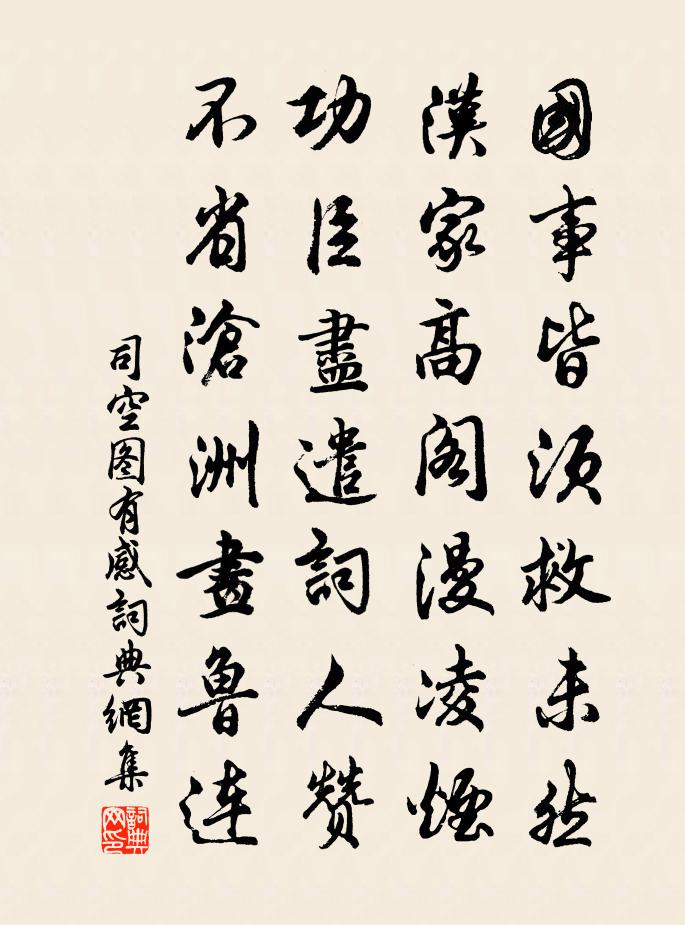 國事皆須救未然
漢家高閣漫凌煙
功臣盡遣詞人贊
不省滄洲畫魯連
司空图有感詞典網集
詞典網印